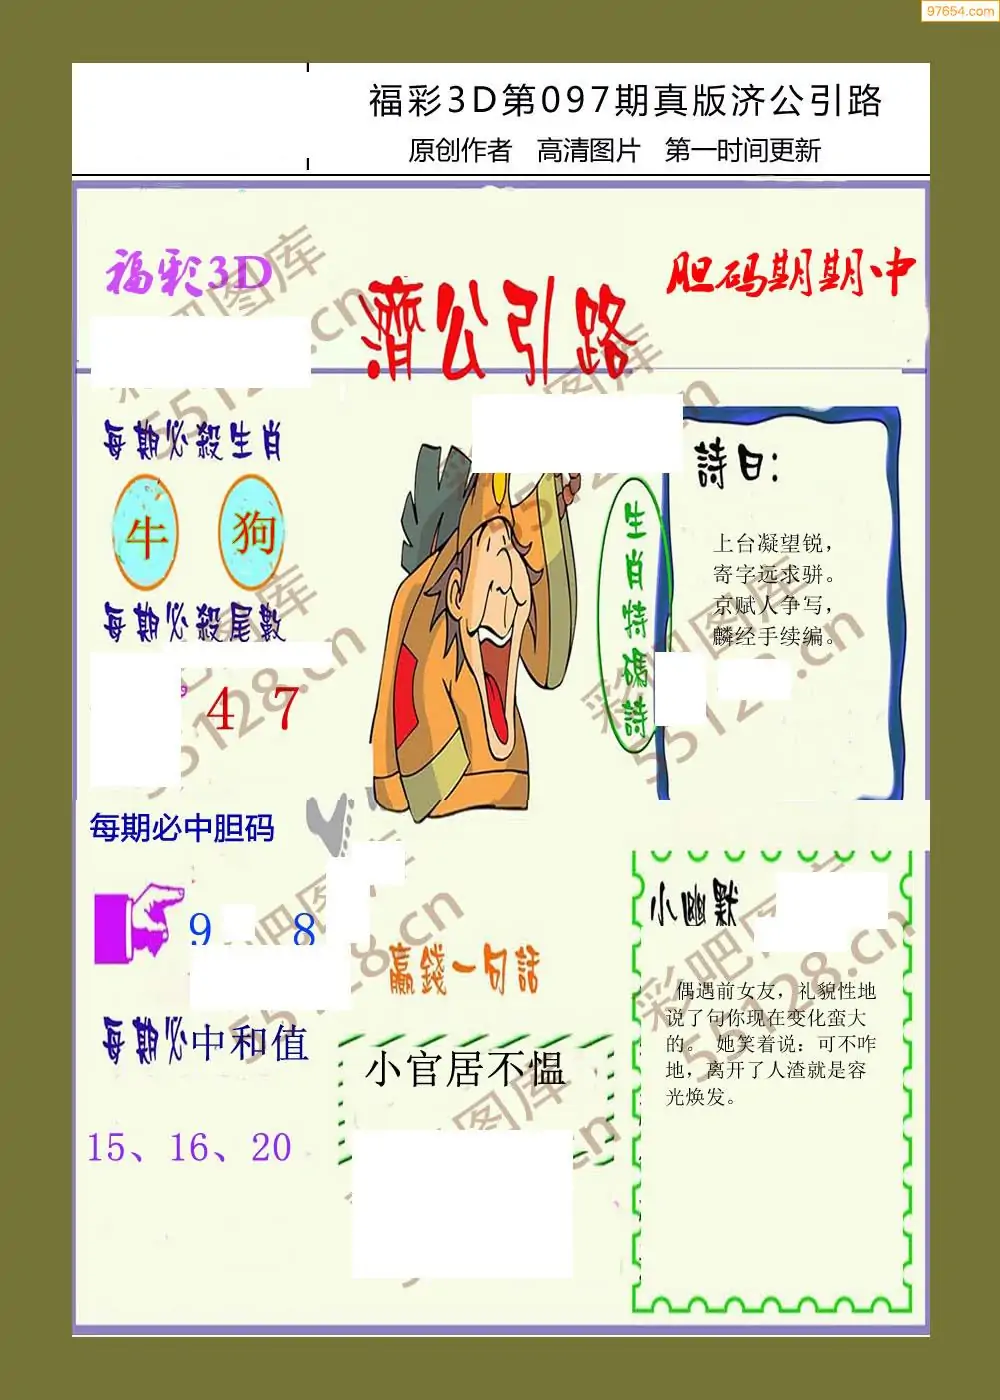 97654.com
福彩3D第097期真版济公引路
原创作者 高清图片 第一时间更新
福彩3D
濟公引路
胆码期期中
每期必殺生肖
牛 狗
每期必殺尾數
4 7
每期必中胆码
9 8
每期必中和值
15、16、20
生肖特碼詩
詩曰：
上台凝望锐，
寄字远求骈。
京赋人争写，
麟经手续编。
贏錢一句話
小官居不愠
小幽默
偶遇前女友，礼貌性地
说了句你现在变化蛮大
的。 她笑着说：可不咋
地，离开了人渣就是容
光焕发。
彩吧图库
55128.cn